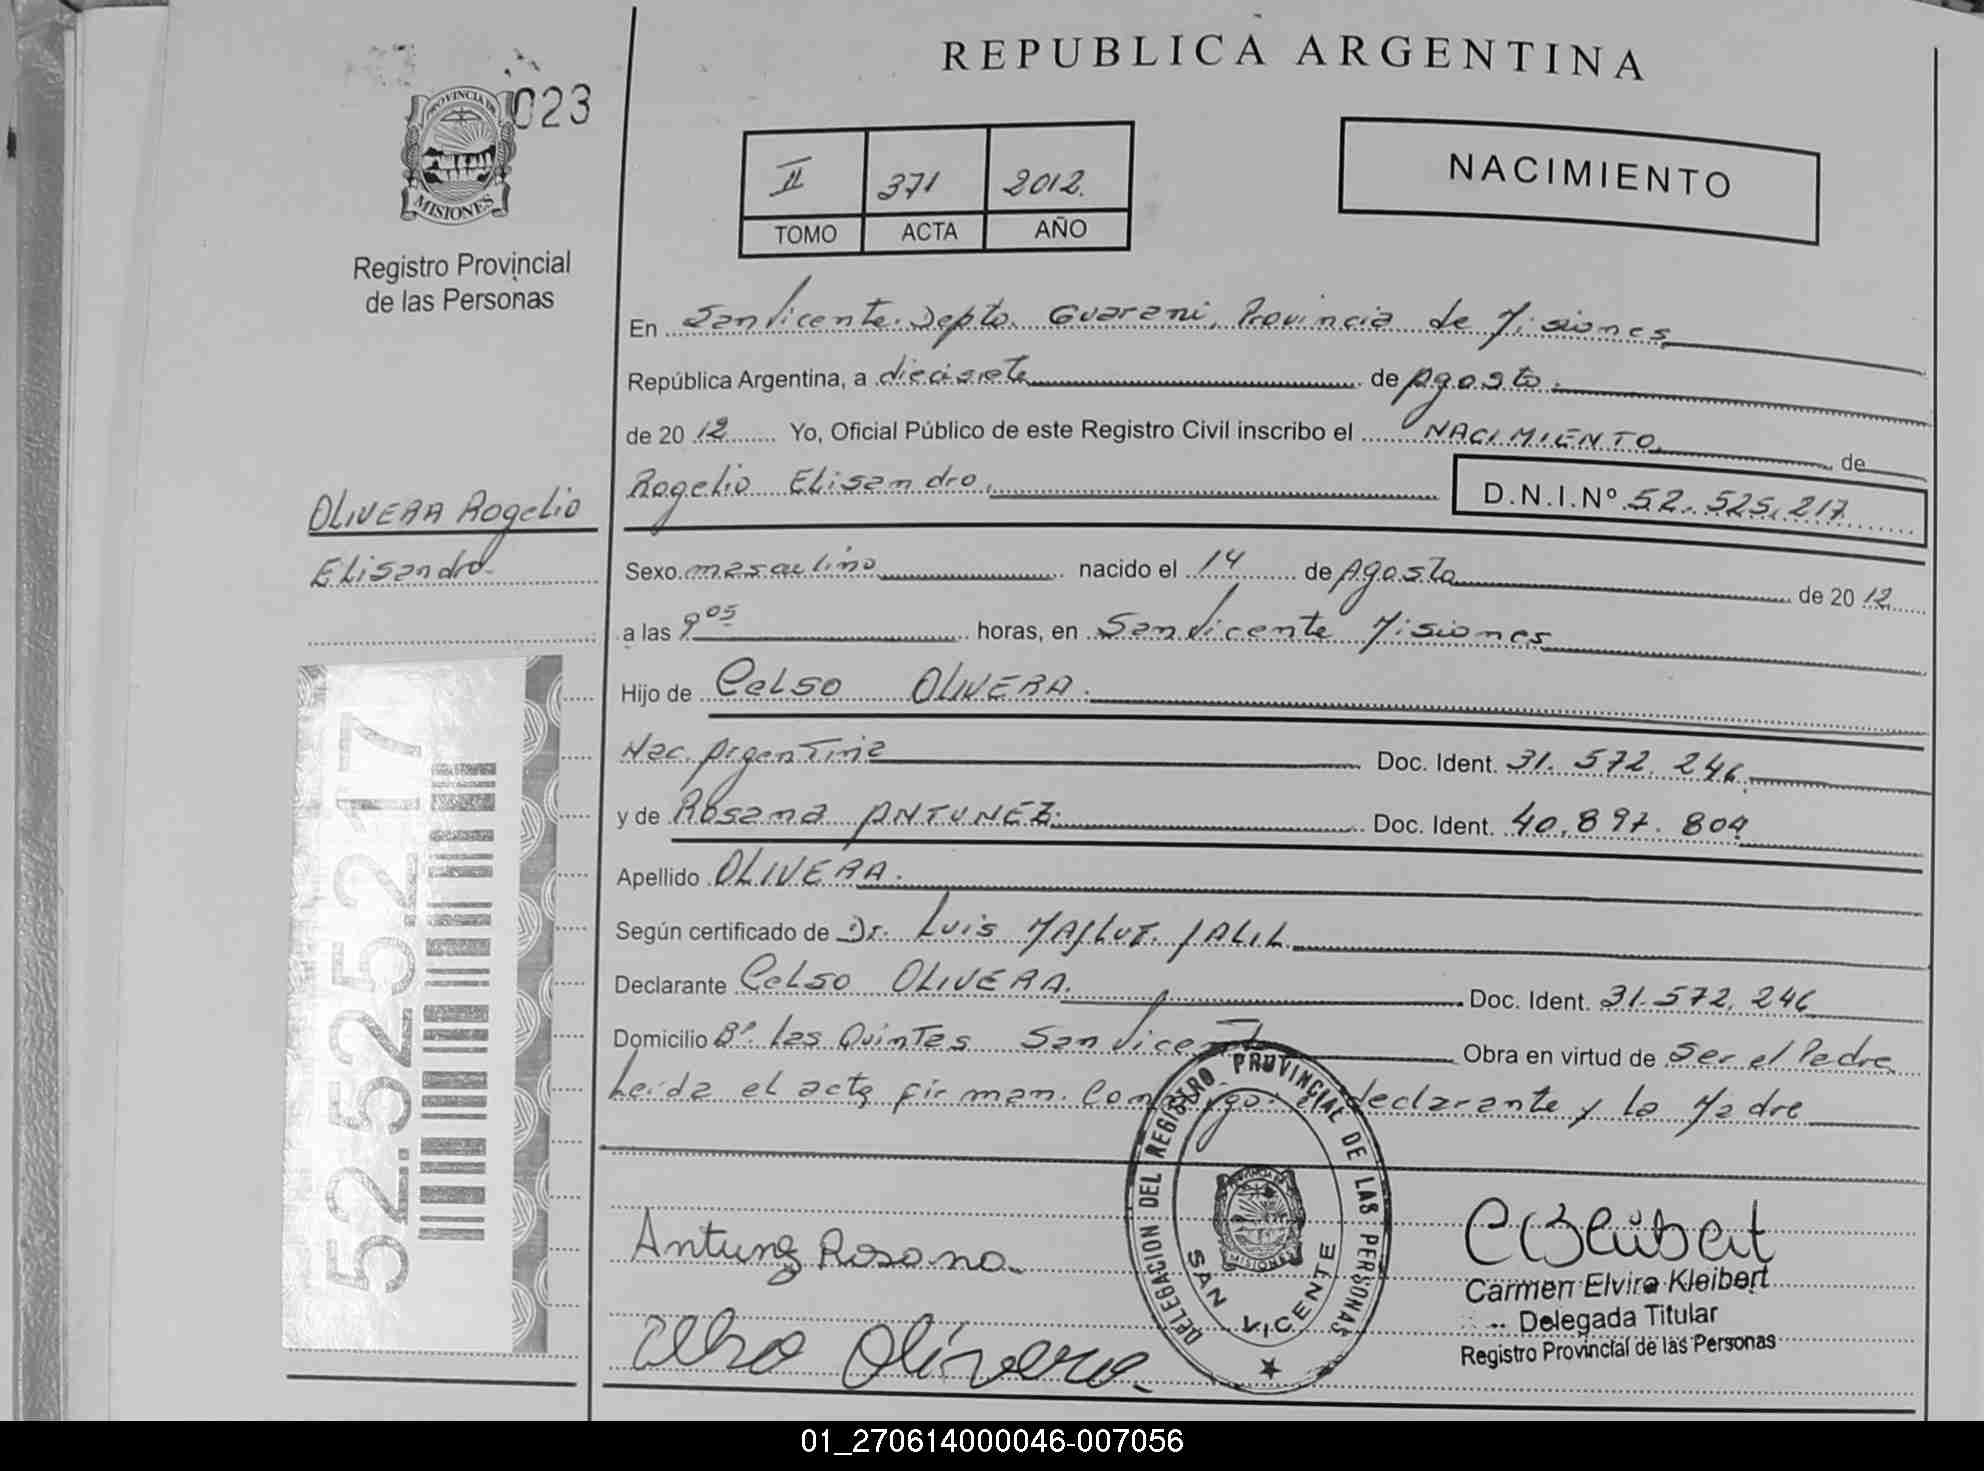 REPUBLICA ARGENTINA
023
PROVINCIA DE
MISIONES
Registro Provincial
de las Personas
II 371 2012.
TOMO ACTA AÑO
NACIMIENTO
En San Vicente. Depto. Guarani, Provincia de Misiones
República Argentina, a diecisiete de Agosto.
de 20 12 Yo, Oficial Público de este Registro Civil inscribo el NACIMIENTO de
Rogelio Elisandro, D.N.I.Nº 52.525.217
OLIVERA Rogelio
Elisandro
Sexo masculino nacido el 14 de Agosto de 20 12
a las 9 05 horas, en San Vicente Misiones
Hijo de Celso OLIVERA.
Nac. Argentina Doc. Ident. 31.572.246
y de Rosana ANTUNEZ. Doc. Ident. 40.897.804
Apellido OLIVERA.
Según certificado de Dr. Luis JALIL
Declarante Celso OLIVERA. Doc. Ident. 31.572.246
Domicilio Bº Las Quintas San Vicente Obra en virtud de Ser el Padre
Leida el acta firman Conmigo: el declarante y la Madre
52.525.217
DELEGACION DEL REGISTRO PROVINCIAL DE LAS PERSONAS
MISIONES
SAN VICENTE
Antunez Rosana.
Celso Olivera.
C E Kleibert
Carmen Elvira Kleibert
Delegada Titular
Registro Provincial de las Personas
01_270614000046-007056